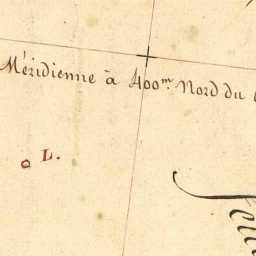 Méridienne à 400m. Nord du
L.